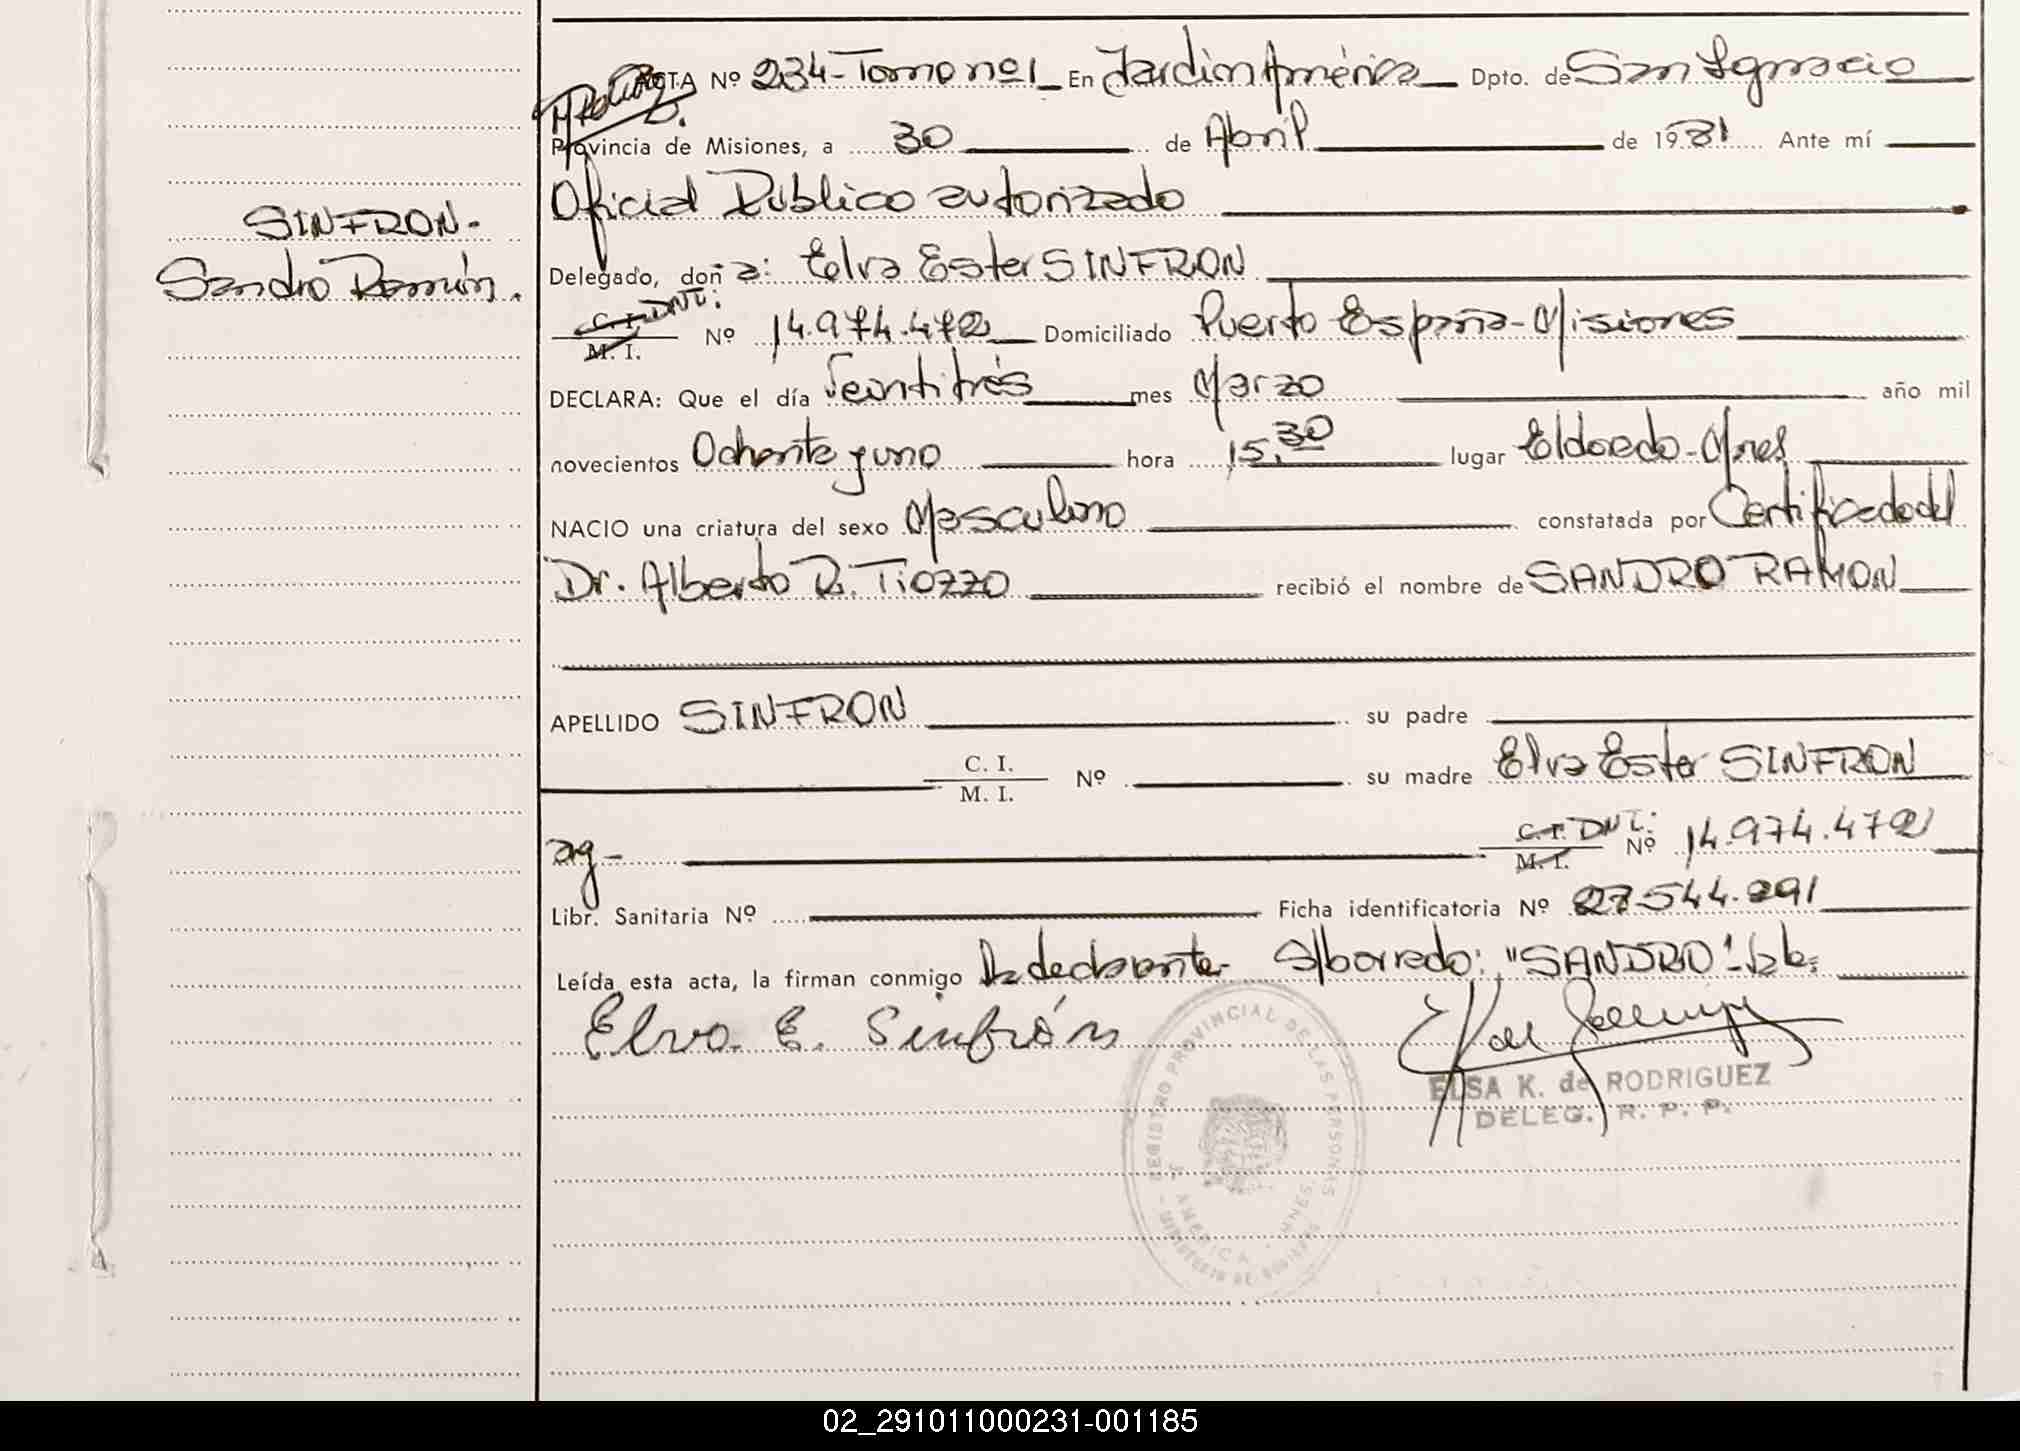 ACTA Nº 234-Tomo nº1 En Jardín América Dpto. de San Ignacio
Provincia de Misiones, a 30 de Abril de 1981 Ante mí
Oficial Público autorizado
SINFRON-
Sandro Ramón.
Delegado, doña: Elva Ester SINFRON
C. I. DNI:
M. I. Nº 14.974.472 Domiciliado Puerto España-Misiones
DECLARA: Que el día Veintitrés mes Marzo año mil
novecientos Ochenta y uno hora 15.30 lugar Eldorado-Mnes
NACIO una criatura del sexo Masculino constatada por Certificado del
Dr. Alberto R. Tiozzo recibió el nombre de SANDRO RAMON
APELLIDO SINFRON su padre
C. I.
M. I. Nº su madre Elva Ester SINFRON
arg- C. I. DNI:
M. I. Nº 14.974.472
Libr. Sanitaria Nº Ficha identificatoria Nº 27.544.291
Leída esta acta, la firman conmigo la declarante- S/borrado: "SANDRO"-Vale:
Elva E. Sinfrón
ELSA K. de RODRIGUEZ
DELEG. R. P. P.
REGISTRO PROVINCIAL DE LAS PERSONAS
MINISTERIO DE GOBIERNO
J. AMERICA - MNES.
02_291011000231-001185